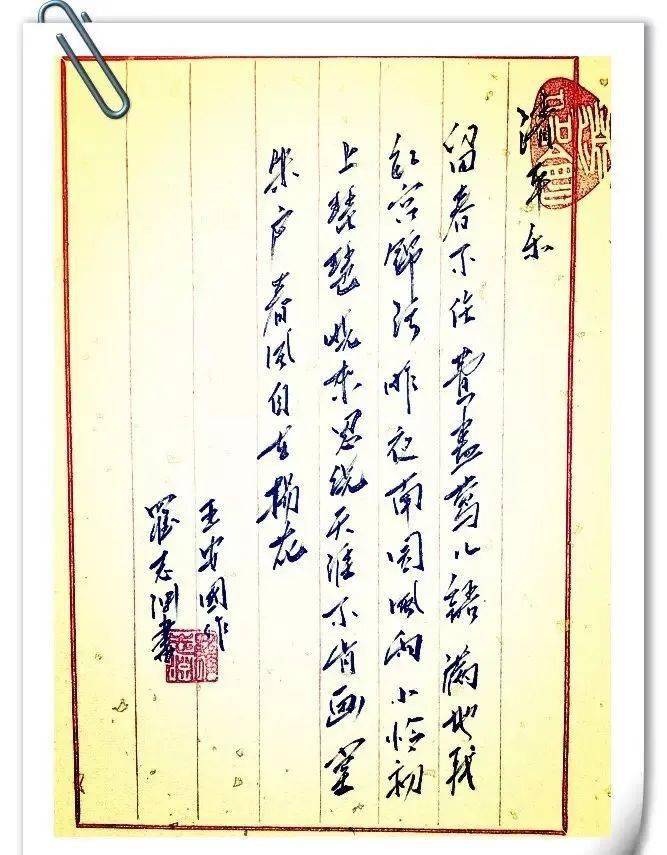 清平乐
留春不住費盡莺儿語满地残
红宫锦污昨夜南园风雨小怜初
上琵琶晓来思绕天涯不肯画堂
朱户春风自在杨花
王安國作
志渊書